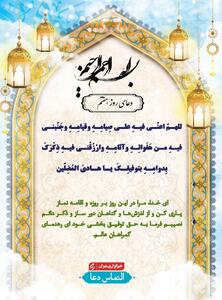 بسم الله الرحمن الرحیم
دعای روز هفتم
اللهمّ اعنّی فیهِ علی صِیامِهِ وقیامِهِ وجَنّبنی
فیهِ من هَفَواتِهِ وآثامِهِ وارْزُقْنی فیهِ ذِکْرَکَ
بِدوامِهِ بتوفیقِکَ یا هادیَ المُضِلّین
ای خدا، مرا در این روز بر روزه و اقامه نماز
یاری کن و از لغزش‌ها و گناهان دور ساز و ذکر دائم
نصیبم فرما به حق توفیق بخشی خود ای رهنمای
گمراهان عالم.
خبرگزاری میزان
التماس دعا